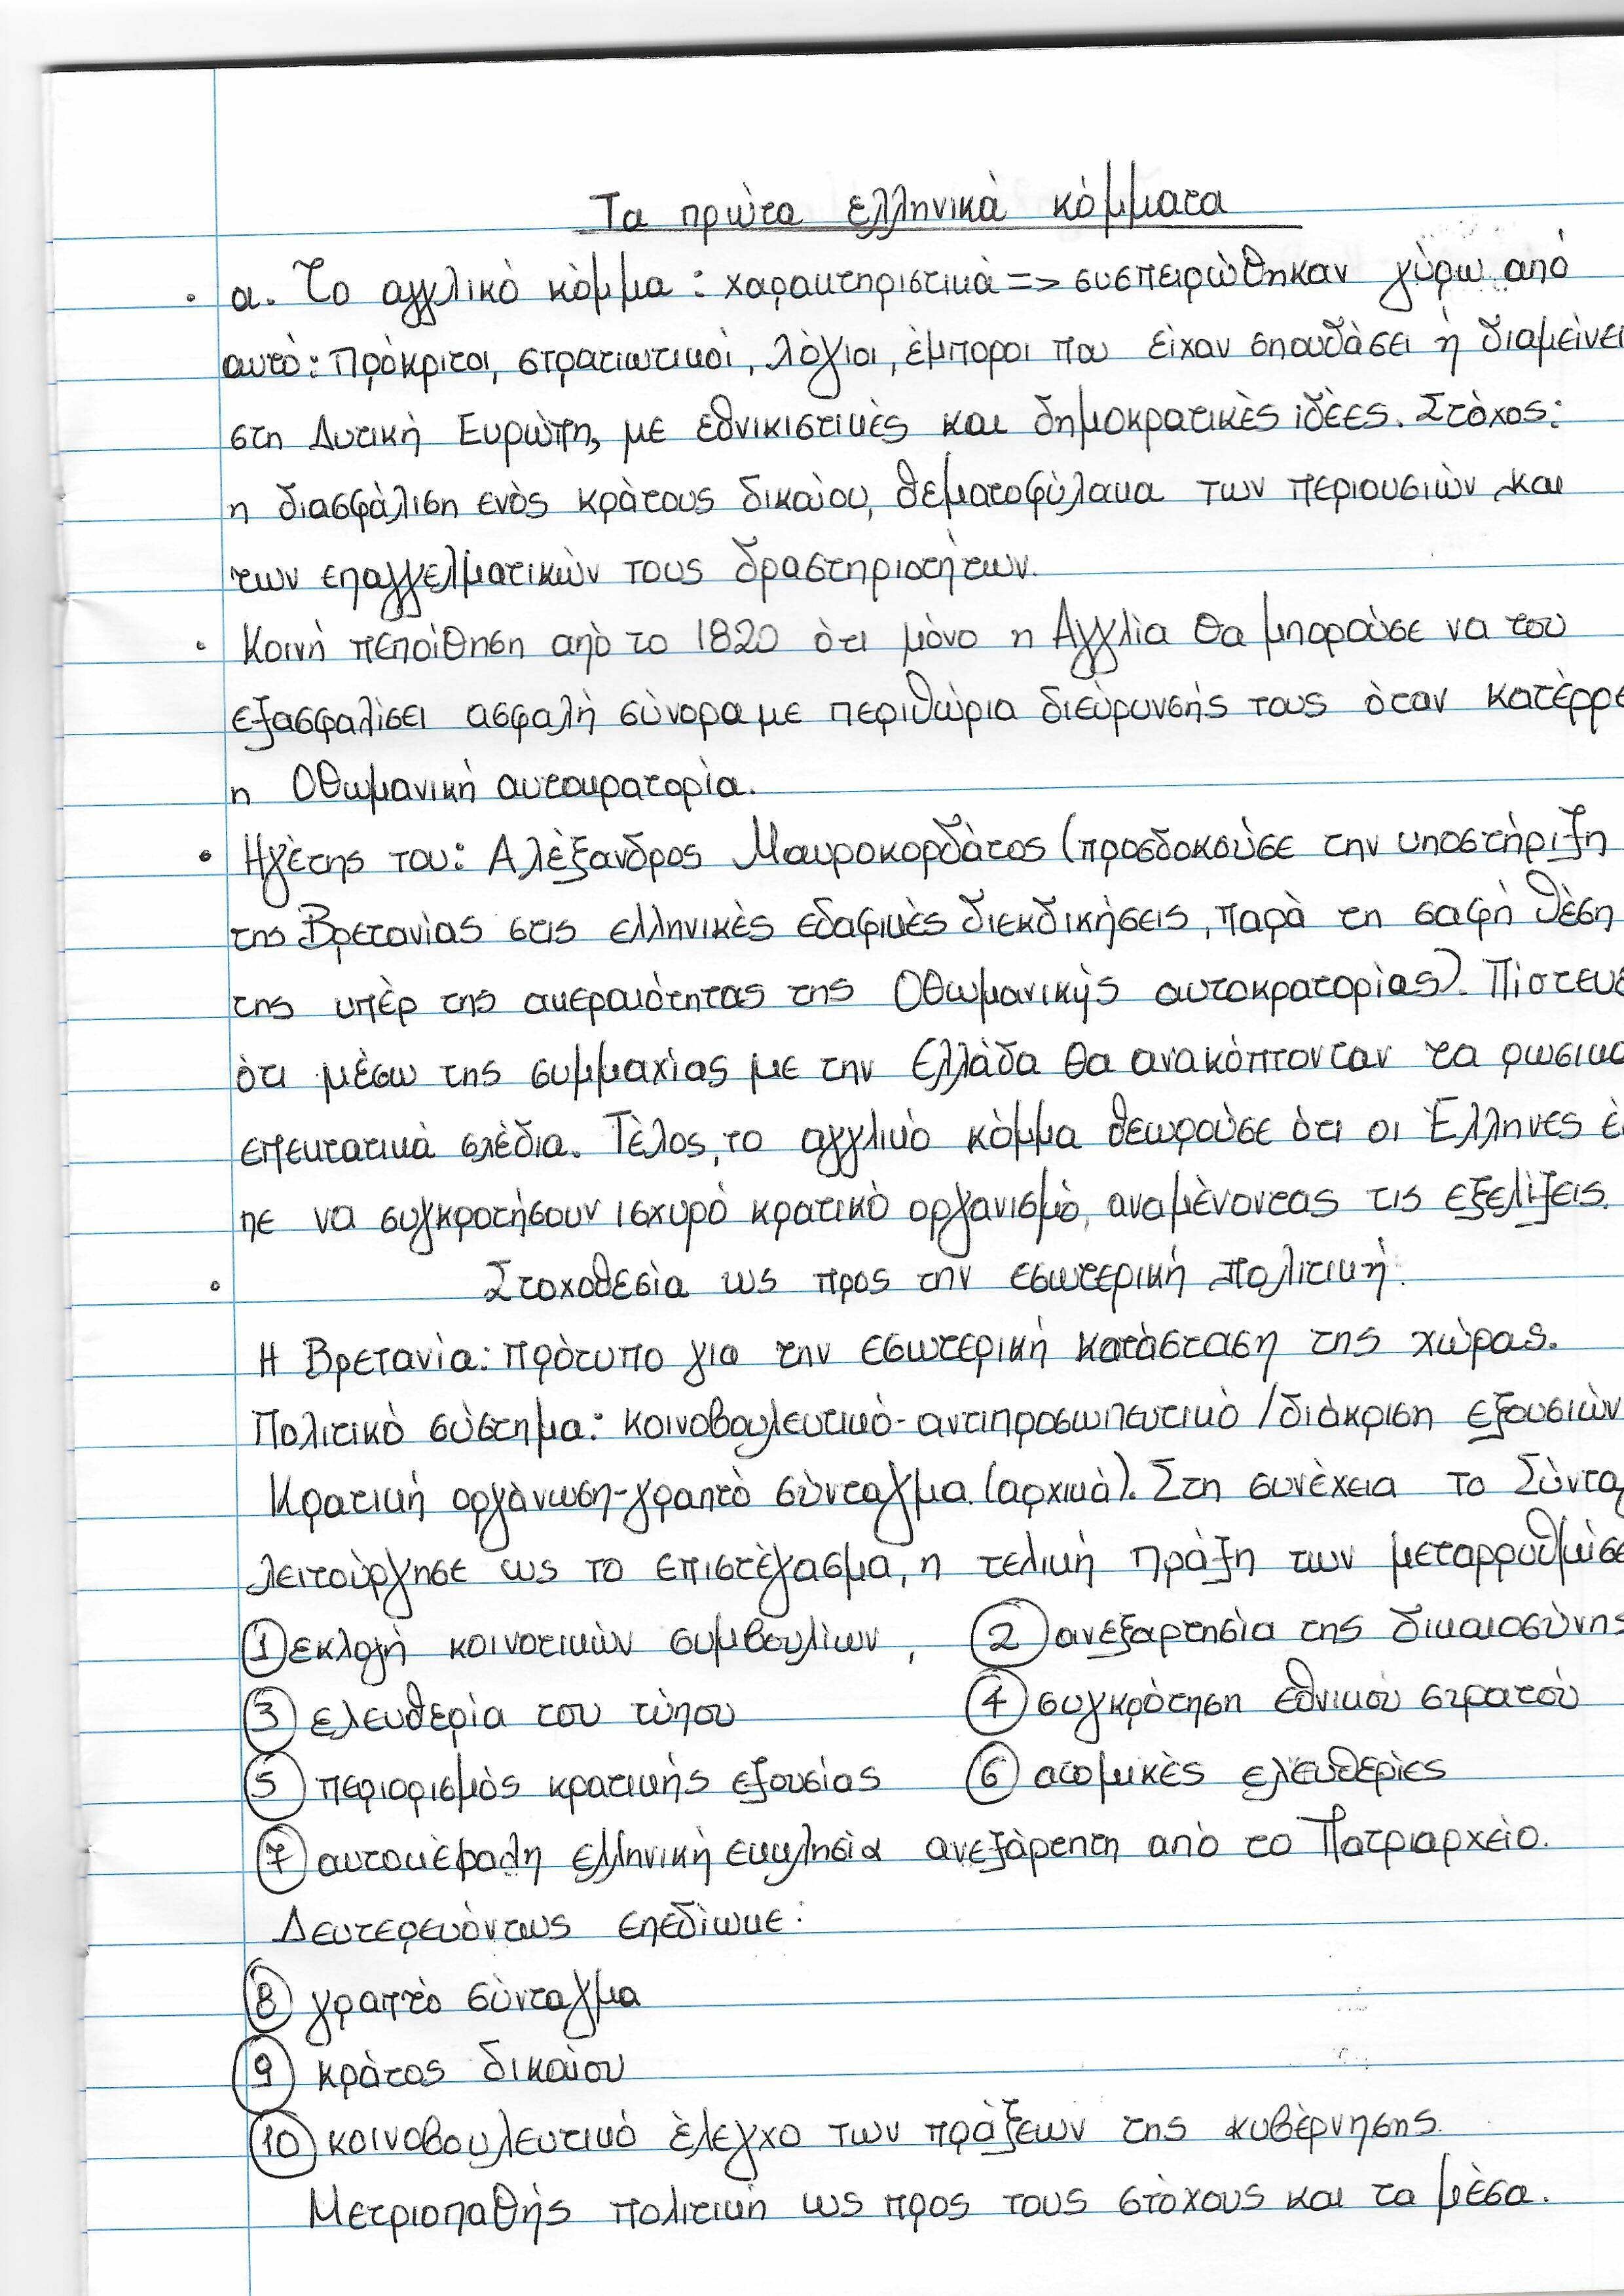 Τα πρώτα ελληνικά κόμματα
• α. Το αγγλικό κόμμα : χαρακτηριστικά => συσπειρώθηκαν γύρω από
αυτό: Πρόκριτοι, στρατιωτικοί, λόγιοι, έμποροι που είχαν σπουδάσει ή διαμείνει
στη Δυτική Ευρώπη, με εθνικιστικές και δημοκρατικές ιδέες. Στόχος:
η διασφάλιση ενός κράτους δικαίου, θεματοφύλακα των περιουσιών και
των επαγγελματικών τους δραστηριοτήτων.
• Κοινή πεποίθηση από το 1820 ότι μόνο η Αγγλία θα μπορούσε να του
εξασφαλίσει ασφαλή σύνορα με περιθώρια διεύρυνσής τους όταν κατέρρε
η Οθωμανική αυτοκρατορία.
• Ηγέτης του: Αλέξανδρος Μαυροκορδάτος (προσδοκούσε την υποστήριξη
της Βρετανίας στις ελληνικές εδαφικές διεκδικήσεις, παρά τη σαφή θέση
της υπέρ της ακεραιότητας της Οθωμανικής αυτοκρατορίας). Πίστευε
ότι μέσω της συμμαχίας με την Ελλάδα θα ανακόπτονταν τα ρωσικα
επεκτατικά σχέδια. Τέλος, το αγγλικό κόμμα θεωρούσε ότι οι Έλληνες έ
πε να συγκροτήσουν ισχυρό κρατικό οργανισμό, αναμένοντας τις εξελίξεις.
• Στοχοθεσία ως προς την εσωτερική πολιτική:
Η Βρετανία: πρότυπο για την εσωτερική κατάσταση της χώρας.
Πολιτικό σύστημα: κοινοβουλευτικό-αντιπροσωπευτικό /διάκριση εξουσιών
Κρατική οργάνωση-γραπτό σύνταγμα (αρχικά). Στη συνέχεια το Σύντα
λειτούργησε ως το επιστέγασμα, η τελική πράξη των μεταρρυθμίσε
① εκλογή κοινοτικών συμβουλίων, ② ανεξαρτησία της δικαιοσύνης
③ ελευθερία του τύπου ④ συγκρότηση εθνικού στρατού
⑤ περιορισμός κρατικής εξουσίας ⑥ ατομικές ελευθερίες
⑦ αυτοκέφαλη ελληνική εκκλησία ανεξάρτητη από το Πατριαρχείο.
Δευτερευόντως επεδίωκε:
⑧ γραπτό σύνταγμα
⑨ κράτος δικαίου
⑩ κοινοβουλευτικό έλεγχο των πράξεων της κυβέρνησης.
Μετριοπαθής πολιτική ως προς τους στόχους και τα μέσα.